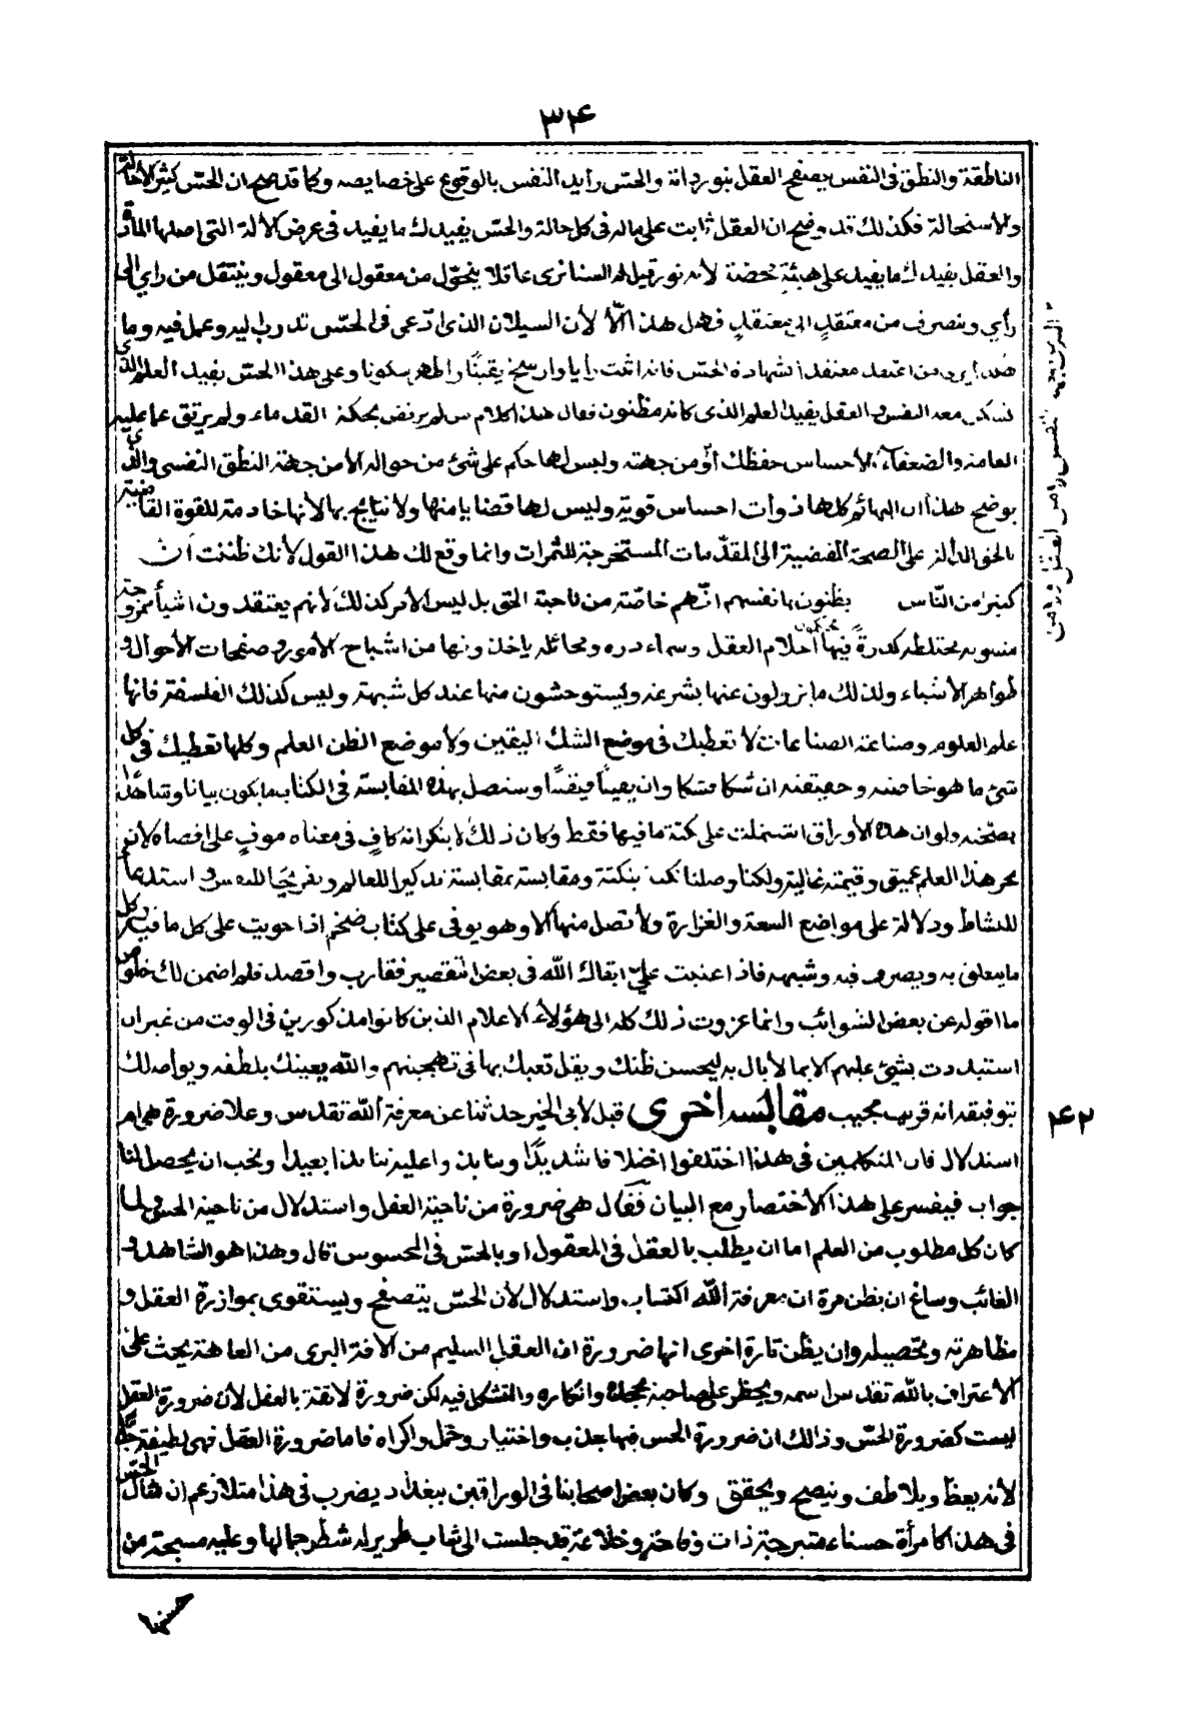 ۳۴
الناطقة والنطق فى النفس يصفح العقل بنور ذاته والحس رأيد النفس بالوقوع على خصايصه وكما قد صح ان الحس كثير الاحالة
والاستحالة فكذلك قد وضح ان العقل ثابت على ماله فى كل حالة والحس يفيدك ما يفيد فى عرض الآلة التى اصلها المادة
والعقل يفيدك ما يفيد على هيئة محضة لأنه نور قيل له السنا نرى عاقلا يتحول من معقول الى معقول وينتقل من راي الى
رأي وينصرف من معتقد الى معتقد فهل هذا الا لأن السيلان الذى ادعى فى الحس تدرب اليه وعمل فيه وما
من اعتقد معتقدا بشهادة الحس فانه اثبت رأيا وارسخ يقينا واظهر سكونا وعلى هذا الحس يفيد العلم الذى
تسكن معه النفس والعقل يفيد العلم الذى كانه مظنون فقال هذا كلام من لم يرتض بحكمة القدماء ولم يرتق عما عليه
العامة والضعفاء الاحساس حفظك من جهته وليس لها حكم على شئ من حواله الا من جهة النطق النفسى والذى
يوضح هذا ان البهائم كلها ذوات احساس قوية وليس لها قضايا منها ولا نتايج بها لأنها خادمة للقوة القاضية
بالحق الدالة على الصحة المفضية الى المقدمات المستخرجة للثمرات وانما وقع لك هذا القول لأنك ظننت ان
كثيرا من الناس يظنون بانفسهم انهم خاصته من ناحية الحق بل ليس الأمر كذلك لأنهم يعتقدون اشيأ ممزوجة
منسوبة مختلطة كدرة فيها احلام العقل وسماء دره ومخائله ياخذونها من اشباح الأمور وصفحات الأحوال و
ظواهر الأشياء ولذلك ما يزولون عنها بشرعة ويستوحشون منها عند كل شبهة وليس كذلك الفلسفة فانها
علم العلوم وصناعة الصناعات لا تعطيك فى موضع الشك اليقين ولا موضع الظن العلم وكلها تعطيك فى كل
شئ ما هو خاصته وحقيقته ان شكا فشكا وان يقينا فيقينا وسنصل بهذه المقابسة فى الكتاب ما يكون بيانا وشاهدا
بصحته ولو ان هذه الأوراق اشتملت على نكتة ما فيها فقط وكان ذلك لا ينكر انه كاف فى معناه موف على اقصاه لأن
بحر هذا العلم عميق وقيمته غالية ولكنا وصلنا نكتة بنكتة ومقابسة بمقابسة تذكيرا للعالم وتفريحا للنفس واستدعاء
للنشاط ودلالة على مواضع السعة والغزارة ولا تصل منها الا وهو يوفى على كتاب ضخم اذا حويت على كل ما فيه وكل
ما يتعلق به ويصرف فيه وشبهه فاذا عتبت علي ابقاك الله فى بعض التقصير فقارب واقصد فلم اضمن لك خلوص
ما اقوله عن بعض الشوائب وانما عزوت ذلك كله الى هؤلاء الاعلام الذين كانوا مذكورين فى الوقت من غير ان
استبددت بشئ عليهم الا بما لا بال به ليحسن ظنك ويقل تعبك بها فى تهجينهم والله يعينك بلطفه ويواصلك
بتوفيقه انه قريب مجيب مقابسه اخرى قيل لأبى الخير حدثنا عن معرفة الله تقدس وعلا ضرورة هى ام
استدلال فان المتكلمين فى هذا اختلفوا اختلافا شديدا وتنابذوا عليه تنابذا بعيدا ونحب ان يحصل لنا
جواب فيفسر على هذا الأختصار مع البيان فقال هى ضرورة من ناحية العقل واستدلال من ناحية الحس ولما
كان كل مطلوب من العلم اما ان يطلب بالعقل فى المعقول او بالحس فى المحسوس قال وهذا هو الشاهد و
الغائب وساغ ان يظن مرة ان معرفة الله اكتساب واستدلال لأن الحس يتصفح ويستقوى بموازرة العقل و
مظاهرته وتحصيله وان يظن تارة اخرى انها ضرورة ان العقل السليم من الافة البرى من العاهة يحث على
الاعتراف بالله تقدس اسمه ويحظر على صاحبه جحده وانكاره والتشكك فيه لكن ضرورة لائقة بالعقل لأن ضرورة العقل
ليست كضرورة الحس وذالك ان ضرورة الحس فيها جذب واختيار وحمل واكراه فاما ضرورة العقل فهى لطيفة جدا
لأنه يعظ ويلاطف وينصح ويحقق وكان بعض اصحابنا فى الوراقين ببغداد يضرب فى هذا مثلا زعم ان مثال الحس
فى هذا كامرأة حسناء متبرجة ذات وقاحة وخلاعة قد جلست الى شاب طرير له شطر جمالها وعليه مسحة من
۴۲
حسنها